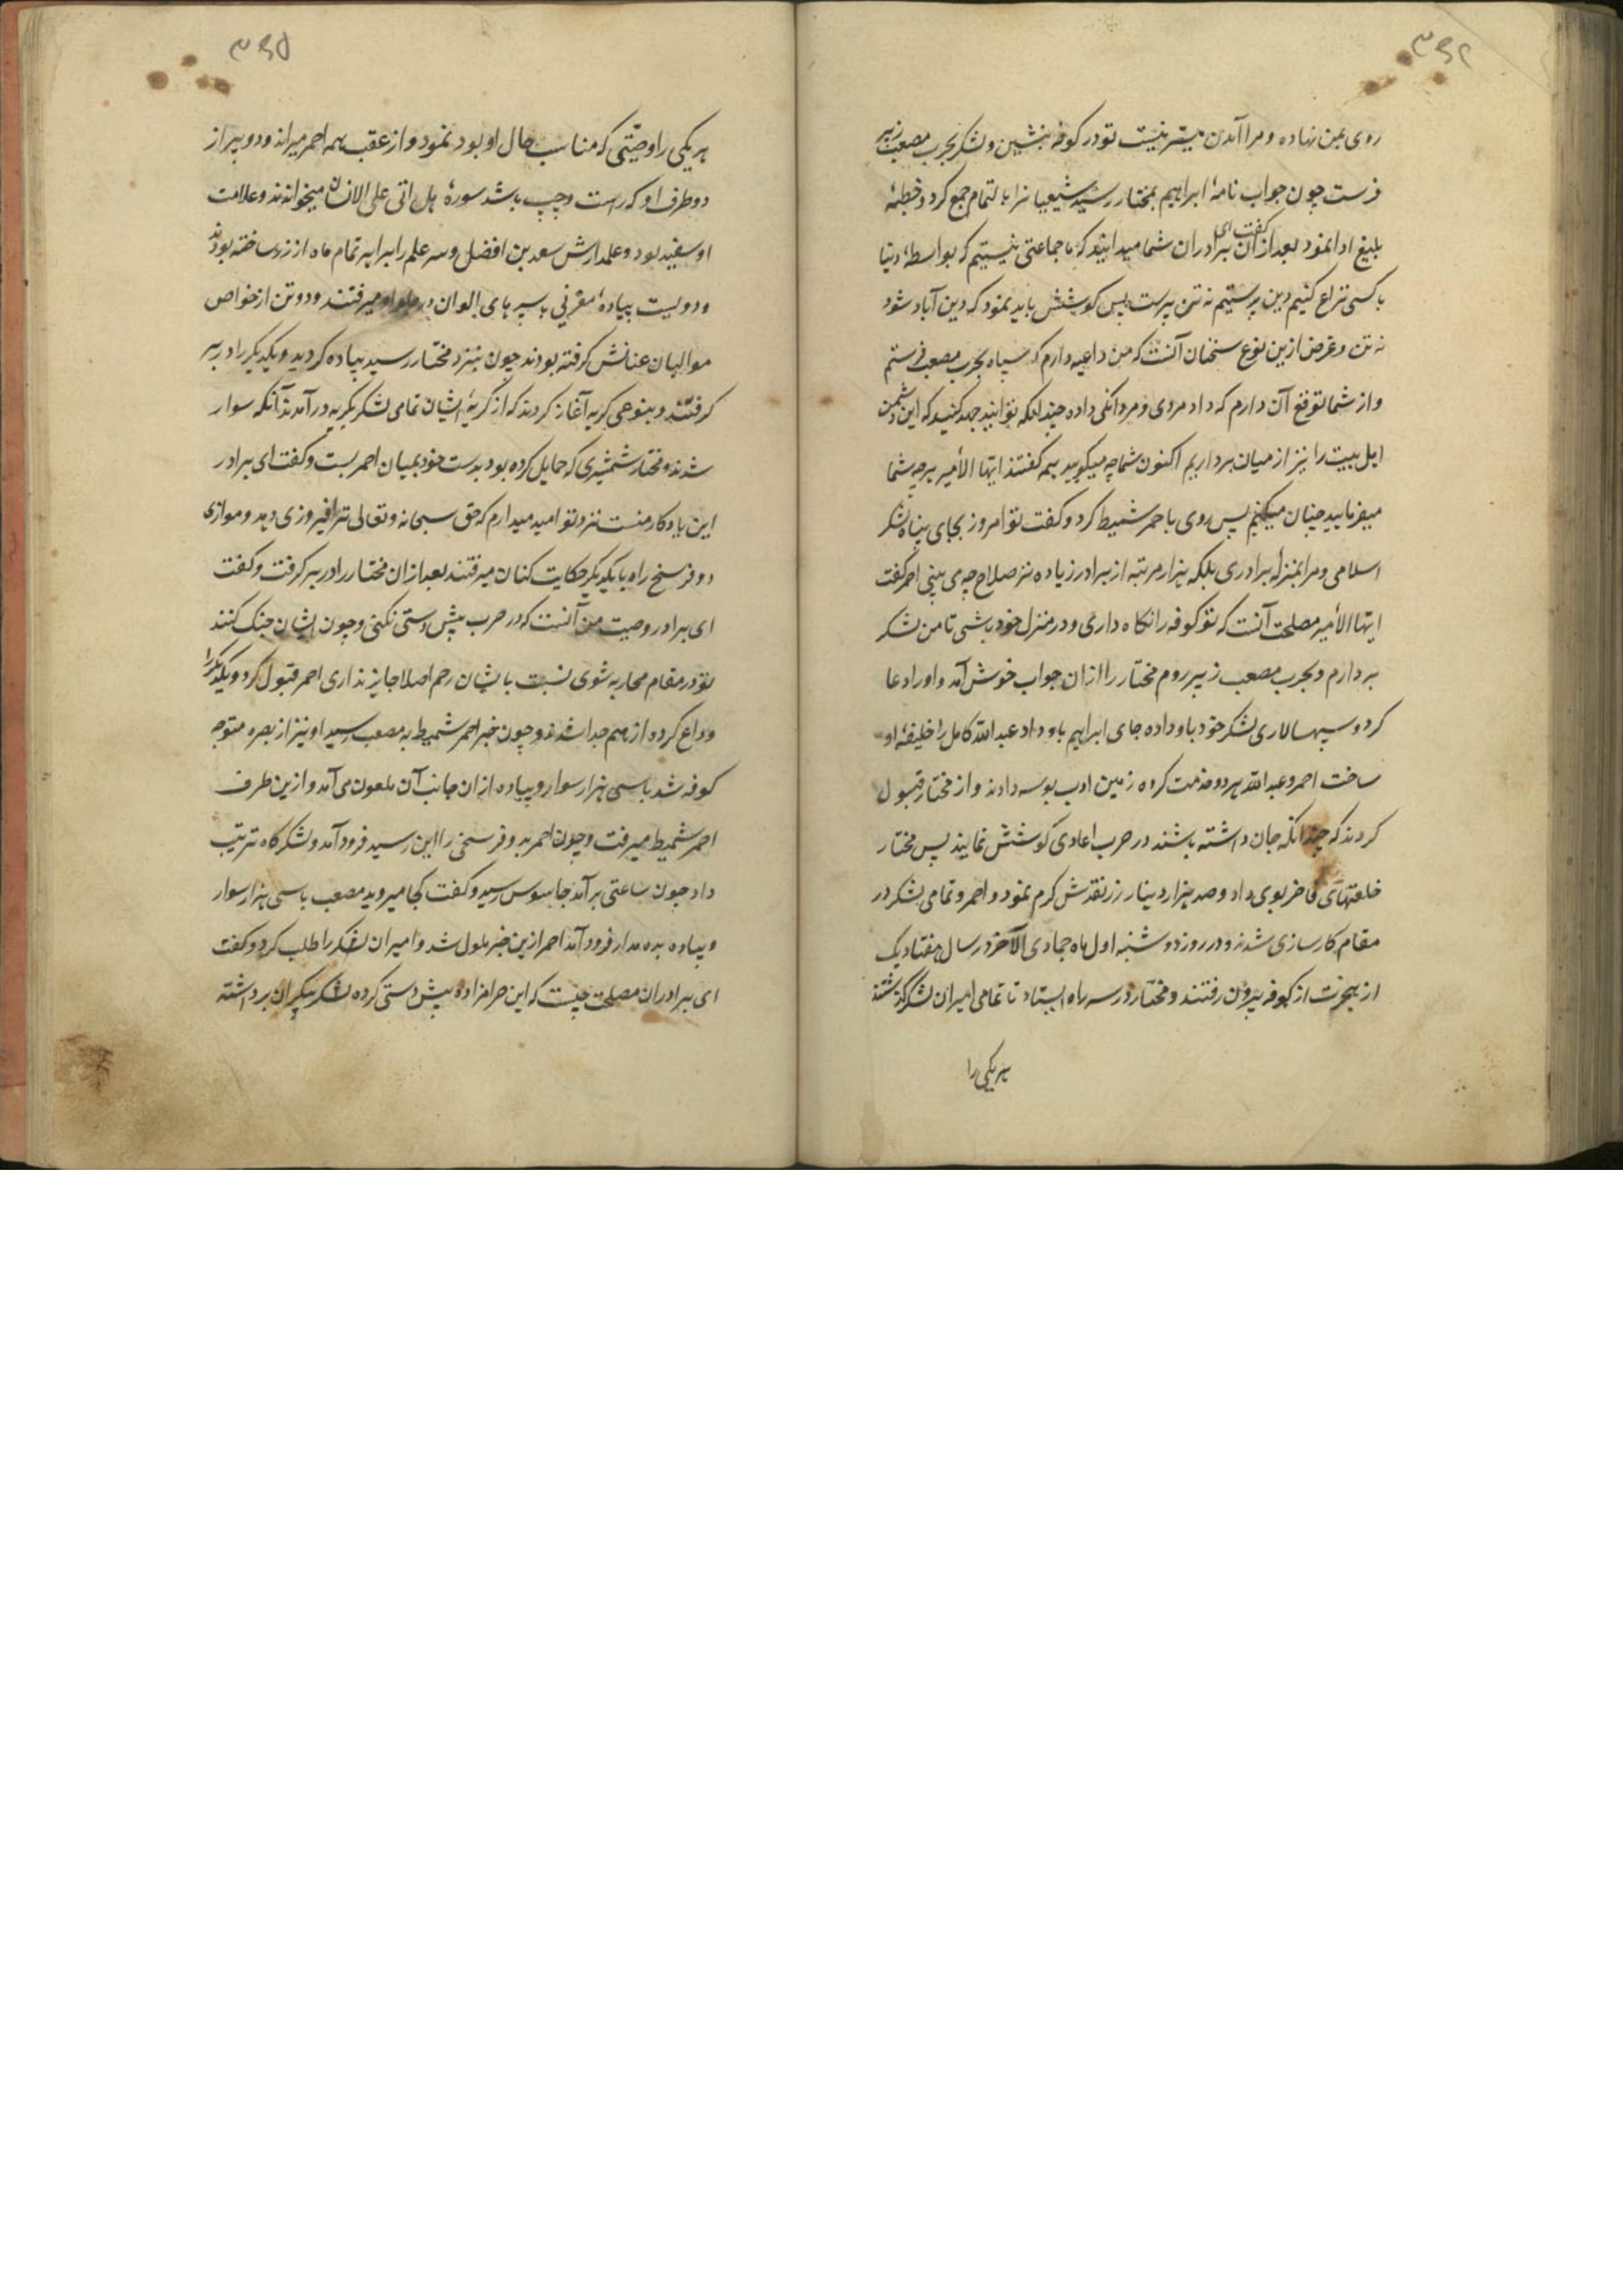 ۳۶۴
روی بمن نهاده و مرا آمدن میسر نیست تو در کوفه بنشین و لشکر بحرب مصعب زبیر
فرست چون جواب نامهٔ ابراهیم بمختار رسید شیعیانرا بالتمام جمع کرد و خطبهٔ
بلیغ ادا نمود بعد از ان گفت ای برادران شما میدانید که با جماعتی نیستیم که بواسطهٔ دنیا
با کسی نزاع کنیم دین پرستیم نه تن پرست پس کوشش باید نمود که دین آباد شود
نه تن و غرض ازین نوع سخنان آنست که من داعیه دارم که سپاه بحرب مصعب فرستم
و از شما توقع آن دارم که داد مردی و مردانکی داده چندانکه توانید جهد کنید که این دشمن
اهل بیت را نیز از میان برداریم اکنون شما چه میکویید همه کفتند ایها الأمیر هرچه شما
میفرمایید چنان میکنیم پس روی باحمر شمیط کرد و کفت تو امروز بجای پناه لشکر
اسلامی و مرا بمنزلهٔ برادری بلکه هزار مرتبه از برادر زیاده تر صلاح چه می بینی احمر کفت
ایها الأمیر مصلحت آنست که تو کوفه را نکاه داری و در منزل خود باشی تا من لشکر
بردارم و بحرب مصعب زبیر روم مختار را ازان جواب خوش آمد و او را دعا
کرد و سپهسالاری لشکر خود باو داده جای ابراهیم باو داد عبد الله کامل را خلیفهٔ او
ساخت احمر و عبد الله هر دو خدمت کرده زمین ادب بوسه دادند و از مختار قبول
کردند که چندانکه جان داشته باشند در حرب اعادی کوشش نمایند پس مختار
خلعتهای فاخر بوی داد و صد هزار دینار زر نقدش کرم نمود و احمر و تمامی لشکر در
مقام کارسازی شدند و در روز دوشنبه اول ماه جمادی الآخر در سال هفتاد یک
از هجرت از کوفه بیرون رفتند و مختار در سه راه ایستاد تا تمامی امیران لشکر کذشتند
هر یکی را
۳۶۵
هر یکی را وصیّتی که مناسب حال او بود نمود و از عقب همه احمر میراند و دو پیر از
دو طرف او که راست و چپ باشد سورهٔ هل اتی علی الانسان میخواندند و علامت
او سفید بود و علمدارش سعد بن افضل و سر علم را برابر تمام ماه از زر ساخته بودند
و دویست پیادهٔ مغربی با سپرهای الوان در جلو او میرفتند و دو تن از خواص
موالیان عنانش کرفته بودند چون بنزد مختار رسید پیاده کردید و یکدیکر را در بر
کرفتند و بنوعی کریه آغاز کردند که از کریهٔ ایشان تمامی لشکر بکریه درآمدند آنکه سوار
شدند و مختار شمشیری که حمایل کرده بود بدست خود بمیان احمر بست و کفت ای برادر
این یادکار منست نزد تو امید میدارم که حق سبحانه و تعالی ترا فیروزی دهد و موازی
دو فرسخ راه با یکدیکر حکایت کنان میرفتند بعد ازان مختار را در بر کرفت و کفت
ای برادر وصیت من آنست که در حرب پیش دستی نکنی و چون ایشان جنک کنند
تو در مقام محاربه شوی نسبت بایشان رحم اصلا جایز نداری احمر قبول کرد و یکدیکر را
وداع کرده از هم جدا شدند و چون خبر احمر شمیط به مصعب رسید او نیز از بصره متوجه
کوفه شد با سی هزار سوار و پیاده ازان جانب آن ملعون می آمد و ازین طرف
احمر شمیط میرفت و چون احمر بدو فرسخی را این رسید فرود آمد و لشکرکاه ترتیب
داد چون ساعتی برآمد جاسوس رسید و کفت کجا میروید مصعب با سی هزار سوار
و پیاده بده مدار فرود آمد احمر ازین خبر ملول شد و امیران لشکر را طلب کرد و کفت
ای برادران مصلحت چیست که این حرامزاده پیش دستی کرده لشکر بیکران برداشته